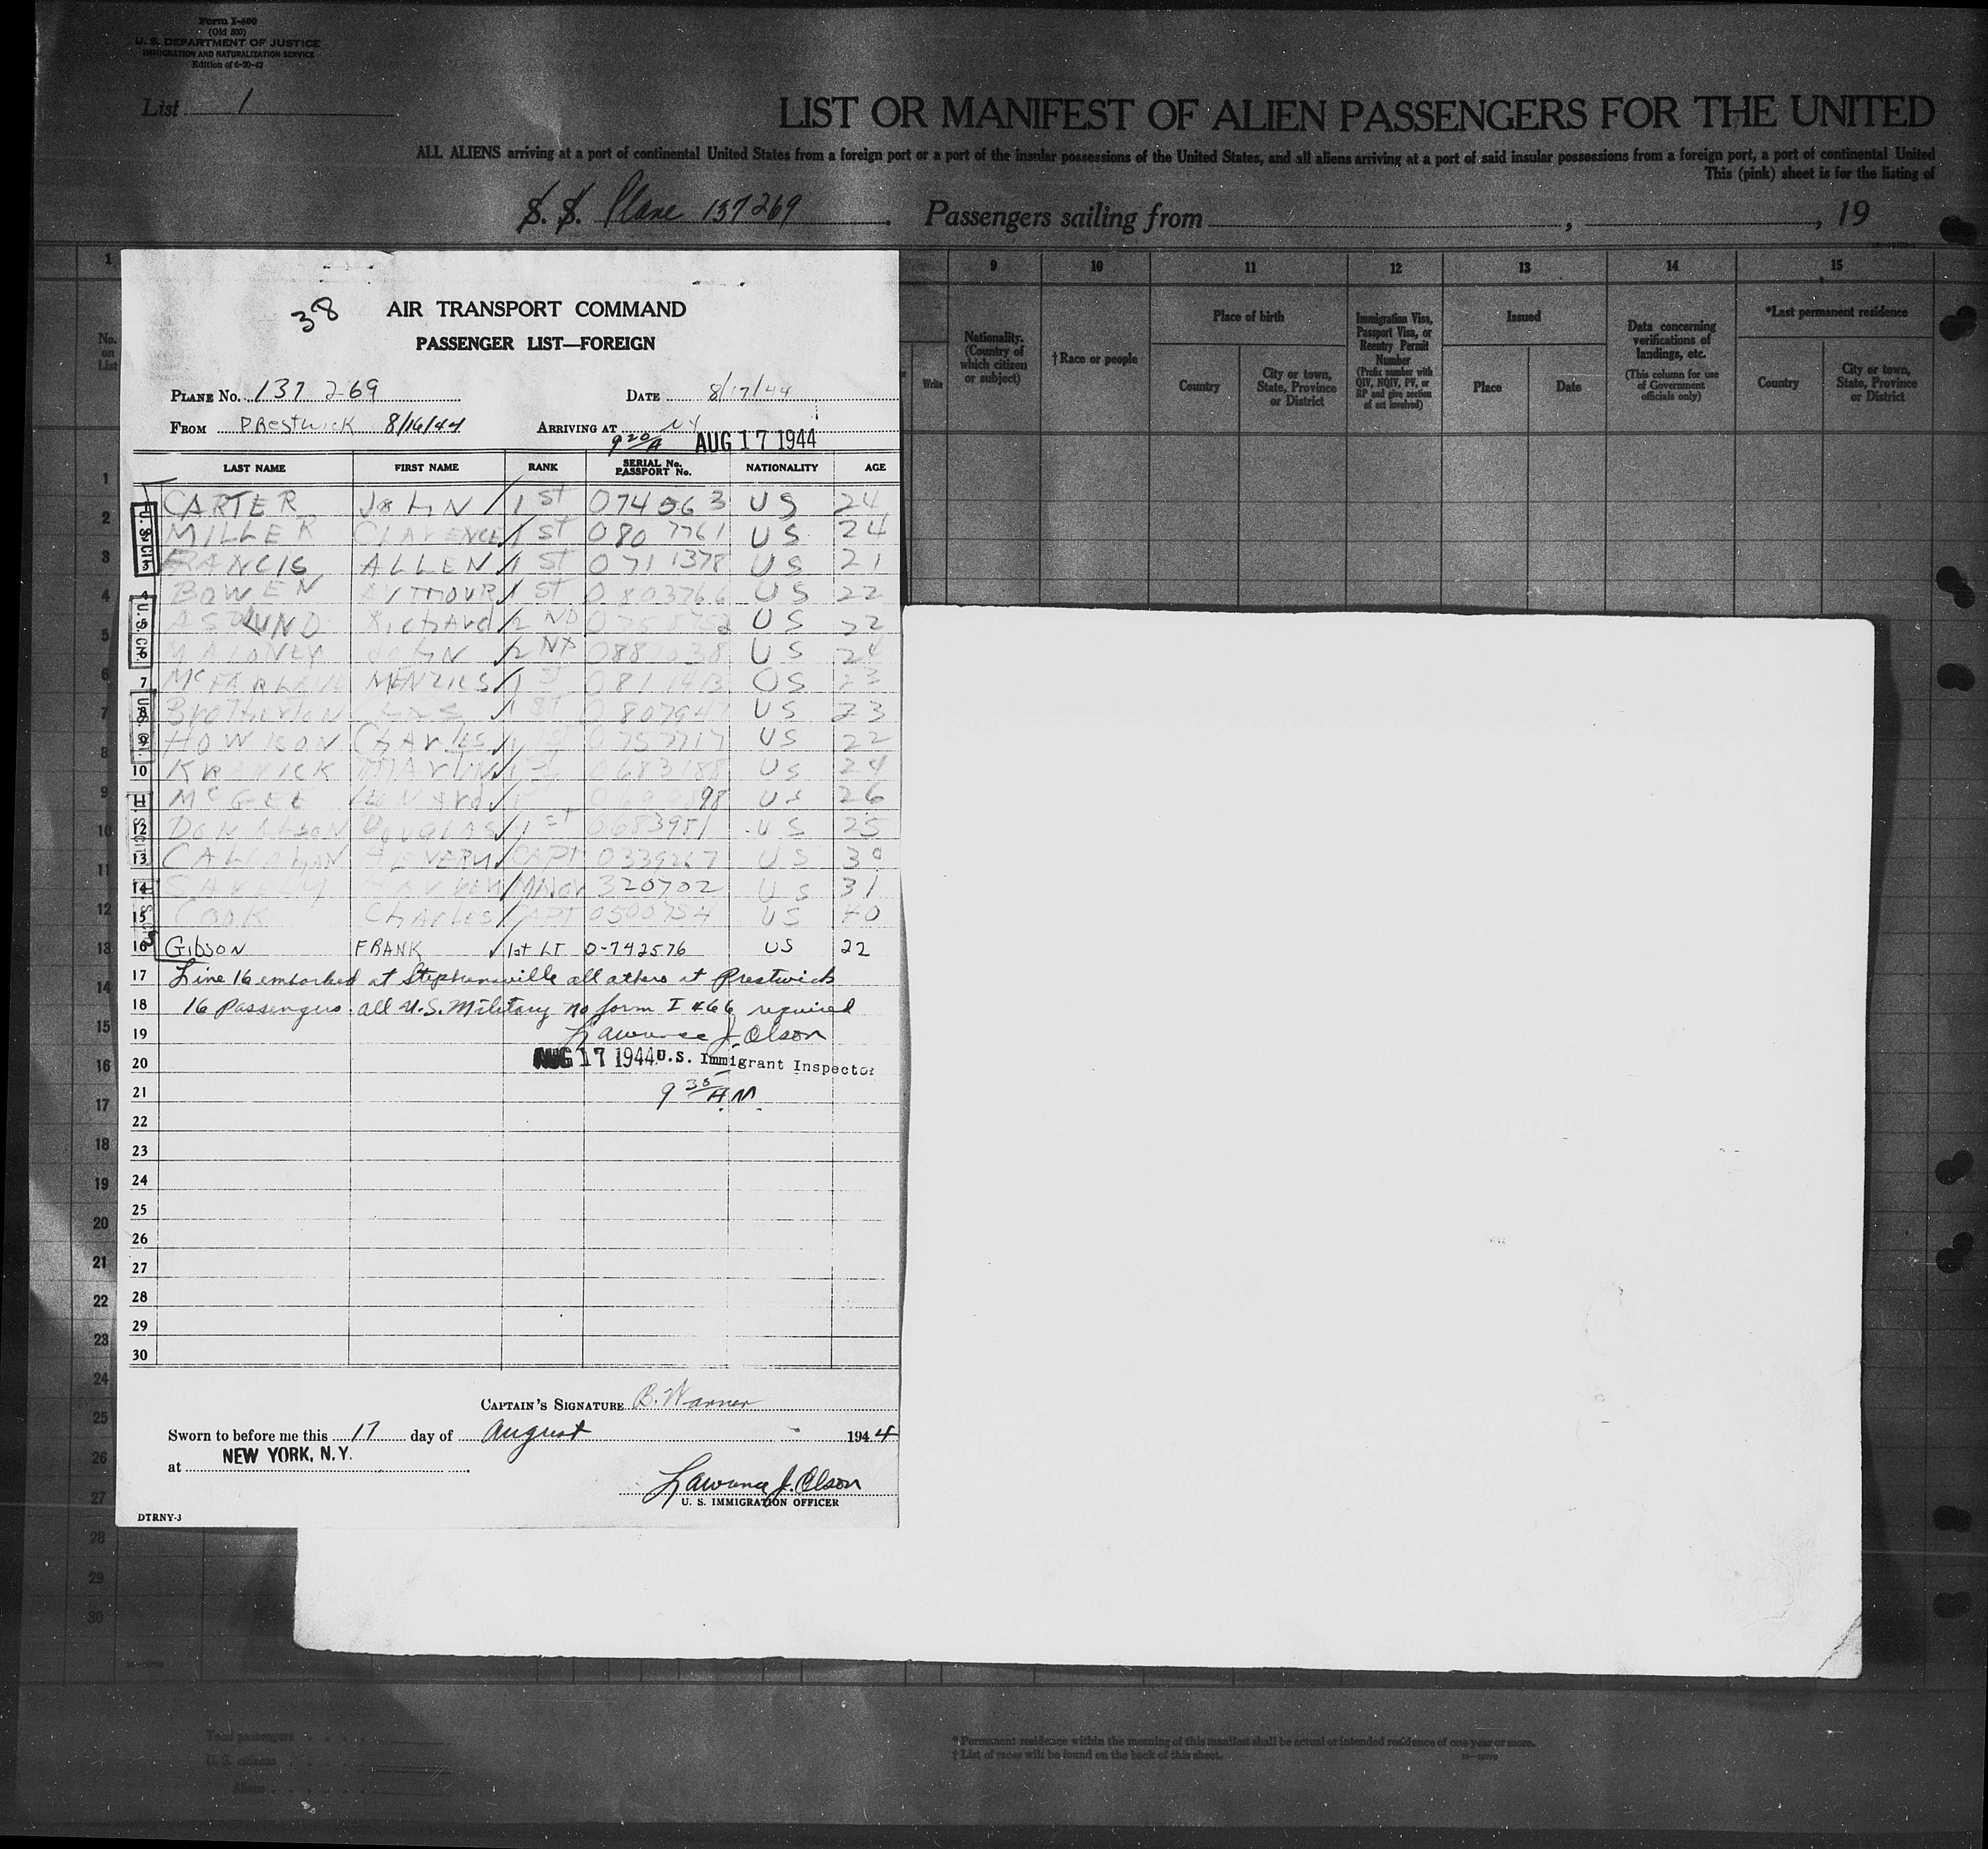 Form I-400
(Old 500)
U. S. DEPARTMENT OF JUSTICE
IMMIGRATION AND NATURALIZATION SERVICE
Edition of 6-20-42
List 1
LIST OR MANIFEST OF ALIEN PASSENGERS FOR THE UNITED
ALL ALIENS arriving at a port of continental United States from a foreign port or a port of the insular possessions of the United States, and all aliens arriving at a port of said insular possessions from a foreign port, a port of continental United
This (pink) sheet is for the listing of
S. S. Plane 137269 Passengers sailing from , , 19
1 9 10 11 12 13 14 15
No. on List
Write
Nationality. (Country of which citizen or subject)
†Race or people
Place of birth
Country
City or town, State, Province or District
Immigration Visa, Passport Visa, or Reentry Permit Number
(Prefix number with QIV, NQIV, PV, or RP and give section of act involved)
Issued
Place
Date
Data concerning verifications of landings, etc.
(This column for use of Government officials only)
*Last permanent residence
Country
City or town, State, Province or District
38
AIR TRANSPORT COMMAND
PASSENGER LIST—FOREIGN
PLANE No. 137 269 DATE 8/17/44
FROM Prestwick 8/16/44 ARRIVING AT NY
9 20/A AUG 17 1944
LAST NAME FIRST NAME RANK SERIAL No. PASSPORT No. NATIONALITY AGE
CARTER JOHN 1 ST 074563 US 24
MILLER CLARENCE 1 ST 080 7761 US 24
FRANCIS ALLEN 1 ST 071 1378 US 21
BOWEN 1 ST 0803766 US 22
RICHARD 2 ND US 22
MALONEY JOHN 2 ND US 24
7 McFARLANE MENZIES 1 ST 0811413 US 23
8 Brotherton CHAS 1 ST US 23
9 HOWISON CHARLES 1 ST 0757717 US 22
10 MARTIN 1 ST 0683188 US 24
11 McGEE 98 US 26
12 DONALSON DOUGLAS 1 ST 0683981 US 25
13 CALLAHAN CAPT 0339267 US 30
14 MAJOR 320702 US 31
15 COOK CHARLES CAPT 0500754 US 40
16 GIBSON FRANK 1st LT 0-742576 US 22
17 Line 16 embarked at Stephenville all others at Prestwick
18 16 Passengers all U.S. Military no form I 466 required
19 Lawrence J. Olson
20 AUG 17 1944 U.S. Immigrant Inspector
21 9 30 A.M.
22
23
24
25
26
27
28
29
30
CAPTAIN'S SIGNATURE B. Warner
Sworn to before me this 17 day of August 1944
at NEW YORK, N.Y.
Lawrence J. Olson
U. S. IMMIGRATION OFFICER
DTRNY-3
1
2
3
4
5
6
7
8
9
10
11
12
13
14
15
16
17
18
19
20
21
22
23
24
25
26
27
28
29
30
Total passengers
U. S. citizens
Aliens
*Permanent residence within the meaning of this manifest shall be actual or intended residence of one year or more.
† List of races will be found on the back of this sheet.